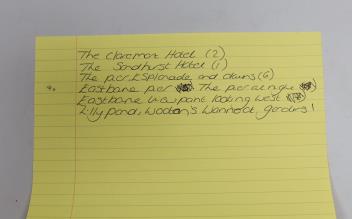 The Claremont Hotel (2)
The Sandhurst Hotel (1)
The pier, Esplanade and downs (6)
Eastbourne pier The pier at night
Eastbourne view point looking west
Lilly pond, gardens!